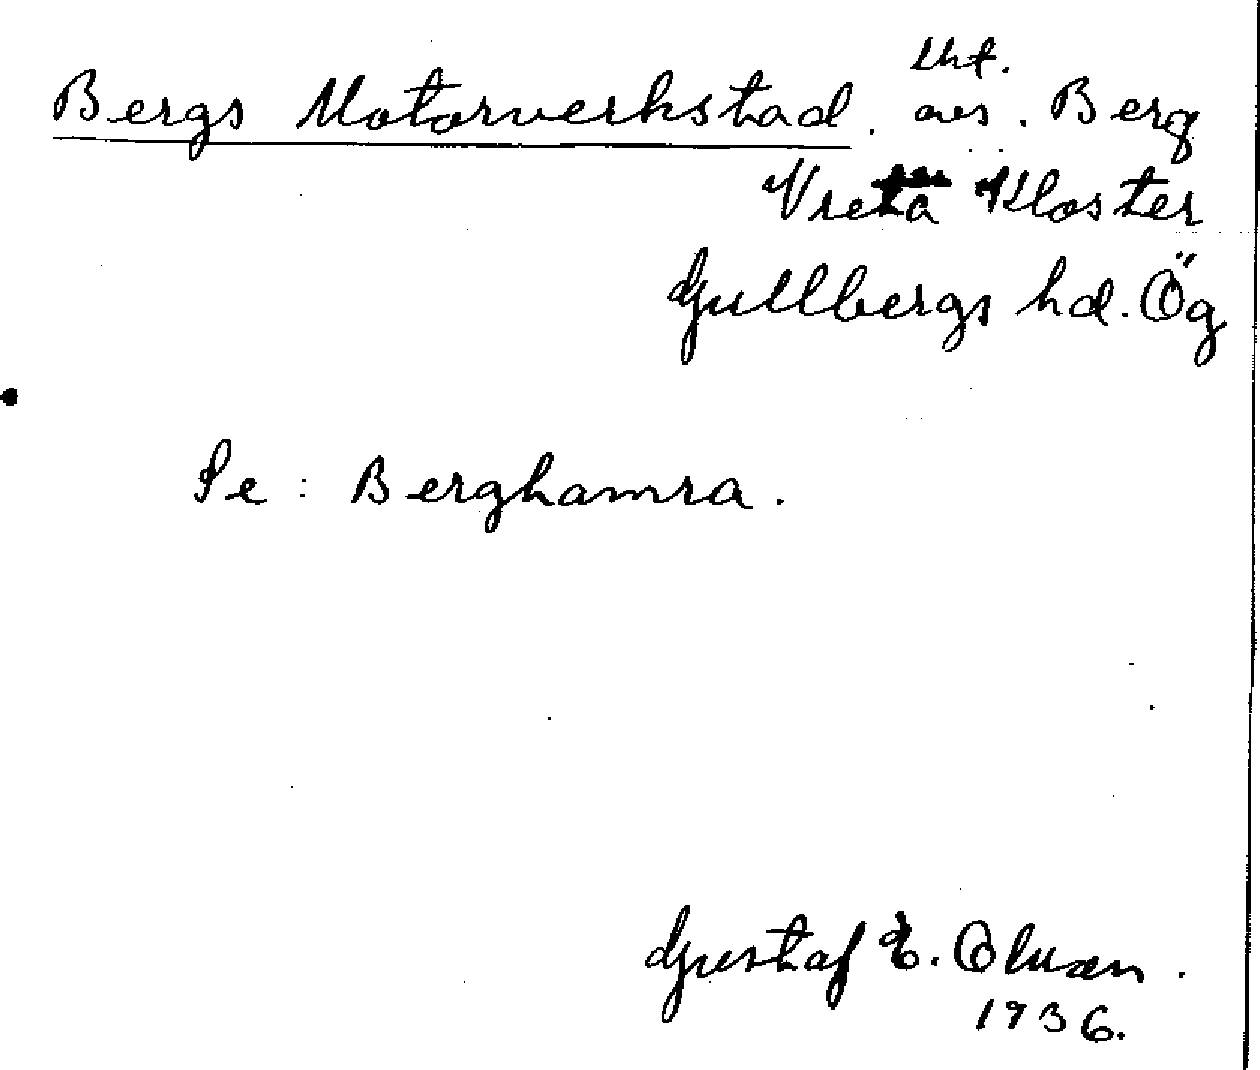 lht.
Bergs Motorverkstad. avs. Berg
Vreta Kloster
Gullbergs hd. Ög
Se: Berghamra.
Gustaf E.
1936.